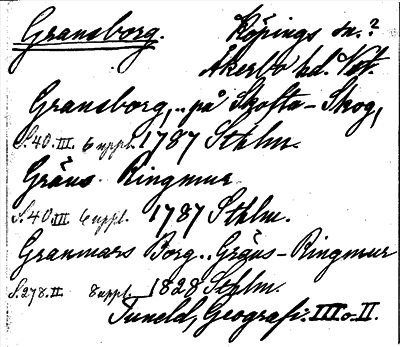 Gransborg. Köpings sn.?
Åkerbo hd. Vstm.
Gransborg, .. på Skofta-Skog,
S. 40. III. 6 uppl. 1787 Sthlm.
Gräns- Ringmur
S. 40. III 6 uppl. 1787 Sthlm.
Granmars Borg .. Gräns-Ringmur
S. 278. II. 8 uppl. 1828 Sthlm.
Tuneld, Geografi: III o. II.